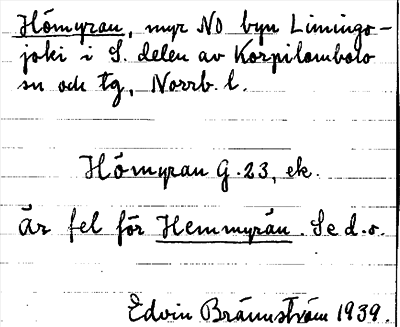 Hömyran, myr NO byn Limingo-
joki i S. delen av Korpilombolo
sn och tg, Norrb. l.
Hömyran G. 23, ek.
Är fel för Hemmyran. Se d. o.
Edvin Brännström 1939.